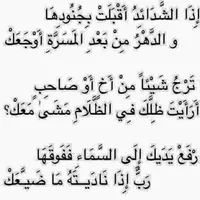 إِذَا الشَّدَائِدُ أَقْبَلَتْ بِجُنُودِهَا
و الدَّهْرُ مِنْ بَعْدِ المَسَرَّةِ أَوْجَعَكْ
تَرْجُ شَيْئاً مِنْ أَخٍ أَوْ صَاحِبٍ
أَرَأَيْتَ ظِلَّكَ فِي الظَّلَامِ مَشَىٰ مَعَكْ؟
رْفَعْ يَدَيْكَ إِلَى السَّمَاءِ فَفَوْقَهَا
رَبٌّ إِذَا نَادَيْتَهُ مَا ضَيَّعَكْ